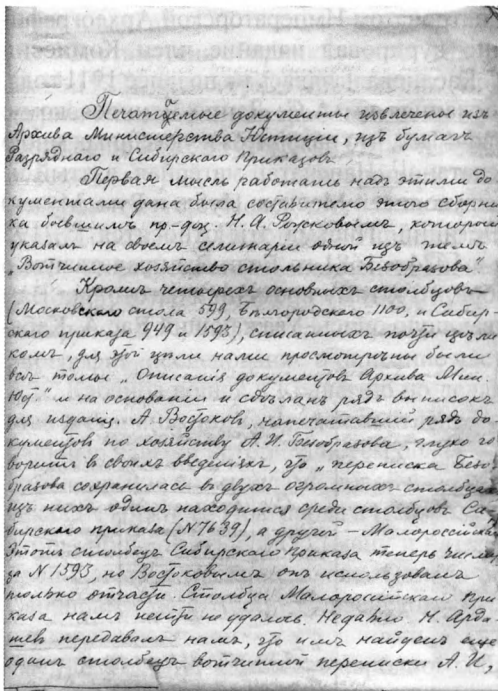 Печатаемые документы извлечены изъ
Архива Министерства Юстиціи, изъ бумагъ
Разряднаго и Сибирскаго Приказовъ.
Первая мысль работать надъ этими до-
кументами дана была составителю этого сборни-
ка бывшимъ пр.-доц. Н. А. Рожковымъ, который
указалъ на своемъ семинаріи одной изъ темъ
„Вотчинное хозяйство стольника Безобразова“.
Кромѣ четырехъ основныхъ столбцовъ
(Московского стола 599, Бѣлгородского 1100, и Сибир-
скаго приказа 949 и 1593), списанныхъ почти цѣли
комъ, для этой цѣли нами просмотрѣны были
всѣ томы „Описанія документовъ Архива Мин.
Юст.“ и на основаніи и сдѣланъ рядъ выписокъ
для изданія. А. Востоковъ, напечатавшій рядъ до-
кументовъ по хозяйству А. И. Безобразова, глухо го
воритъ в своихъ введеніяхъ, что „переписка Безо
бразова сохранилась в двухъ огромныхъ столбцахъ
изъ нихъ одинъ находится среди столбцовъ Си-
бирскаго приказа (N 7639), а другой – Малороссійскаго
Этотъ столбецъ Сибирскаго Приказа теперь числи
за N 1593, но Востоковымъ онъ использованъ
только отчасти. Столбца Малороссійскаго При
каза намъ найти не удалось. Недавно Н. Арда-
шевъ передавалъ намъ, что имъ найденъ еще
одинъ столбецъ вотчинной переписки А. И,